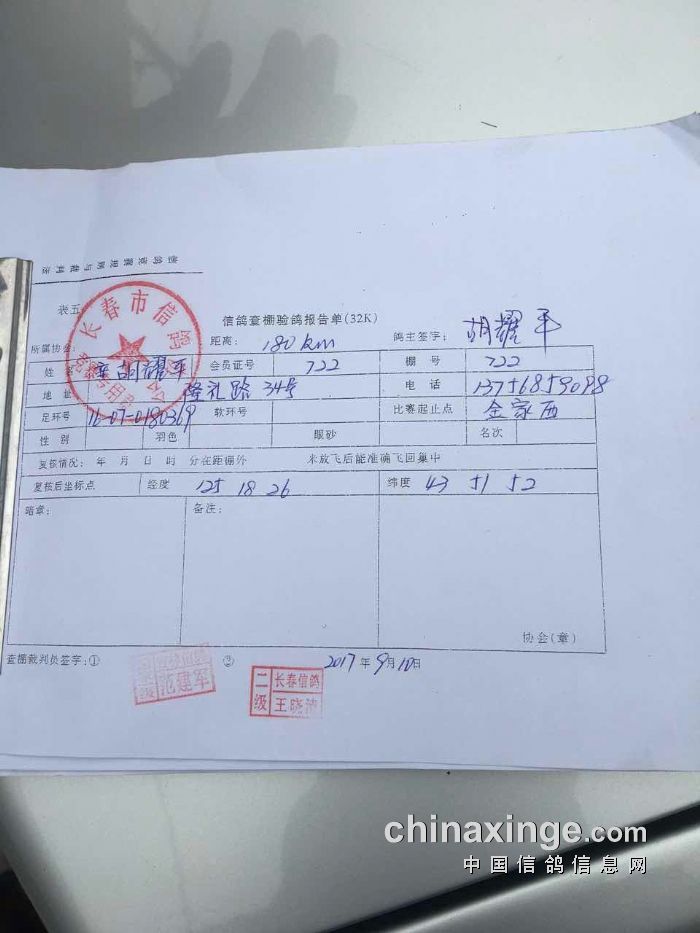 信鸽竞赛规则与裁判法
表五
长春市信鸽
信鸽查棚验鸽报告单(32K)
所属协会: 距离: 180km 鸽主签字: 胡耀平
姓名 胡耀平 会员证号 722 棚号 722
地址 隆礼路34号 电话 13756859098
足环号 16-07-0180369 软环号 比赛起止点 金家西
性别 羽色 眼砂 名次
复核情况: 年 月 日 时 分在距棚外 米放飞后能准确飞回巢中
复核后坐标点 经度 125 18 26 纬度 43 51 52
略章: 备注:
协会(章)
查棚裁判员签字:① ② 2017年9月10日
范建军
二级 长春信鸽 王晓
chinaxinge.com
中国信鸽信息网